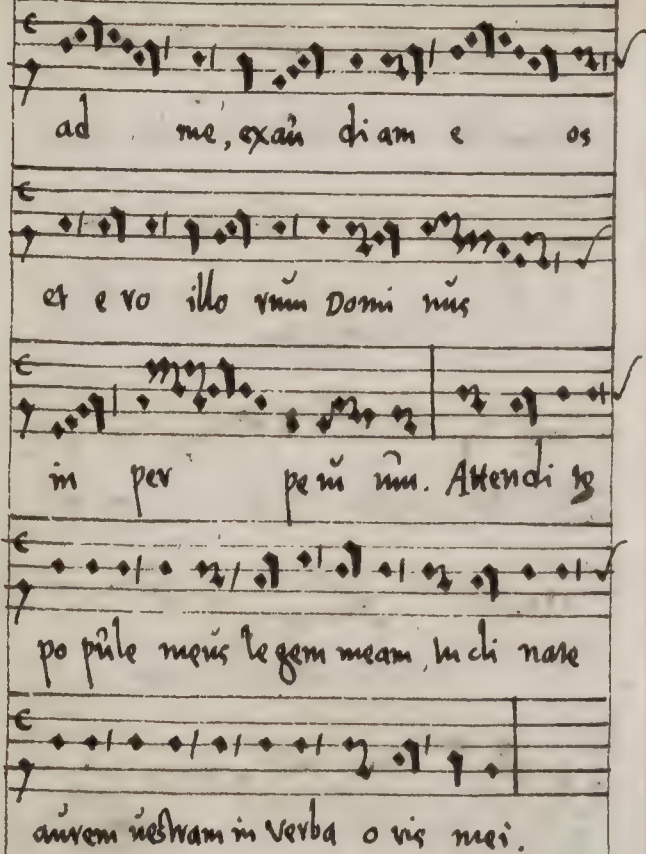 ad me, exau di am e os
et e ro illo rum Domi nus
in per pe tu um. Attendi te
po pule meus legem meam, In cli nate
aurem uestram in verba o ris mei.